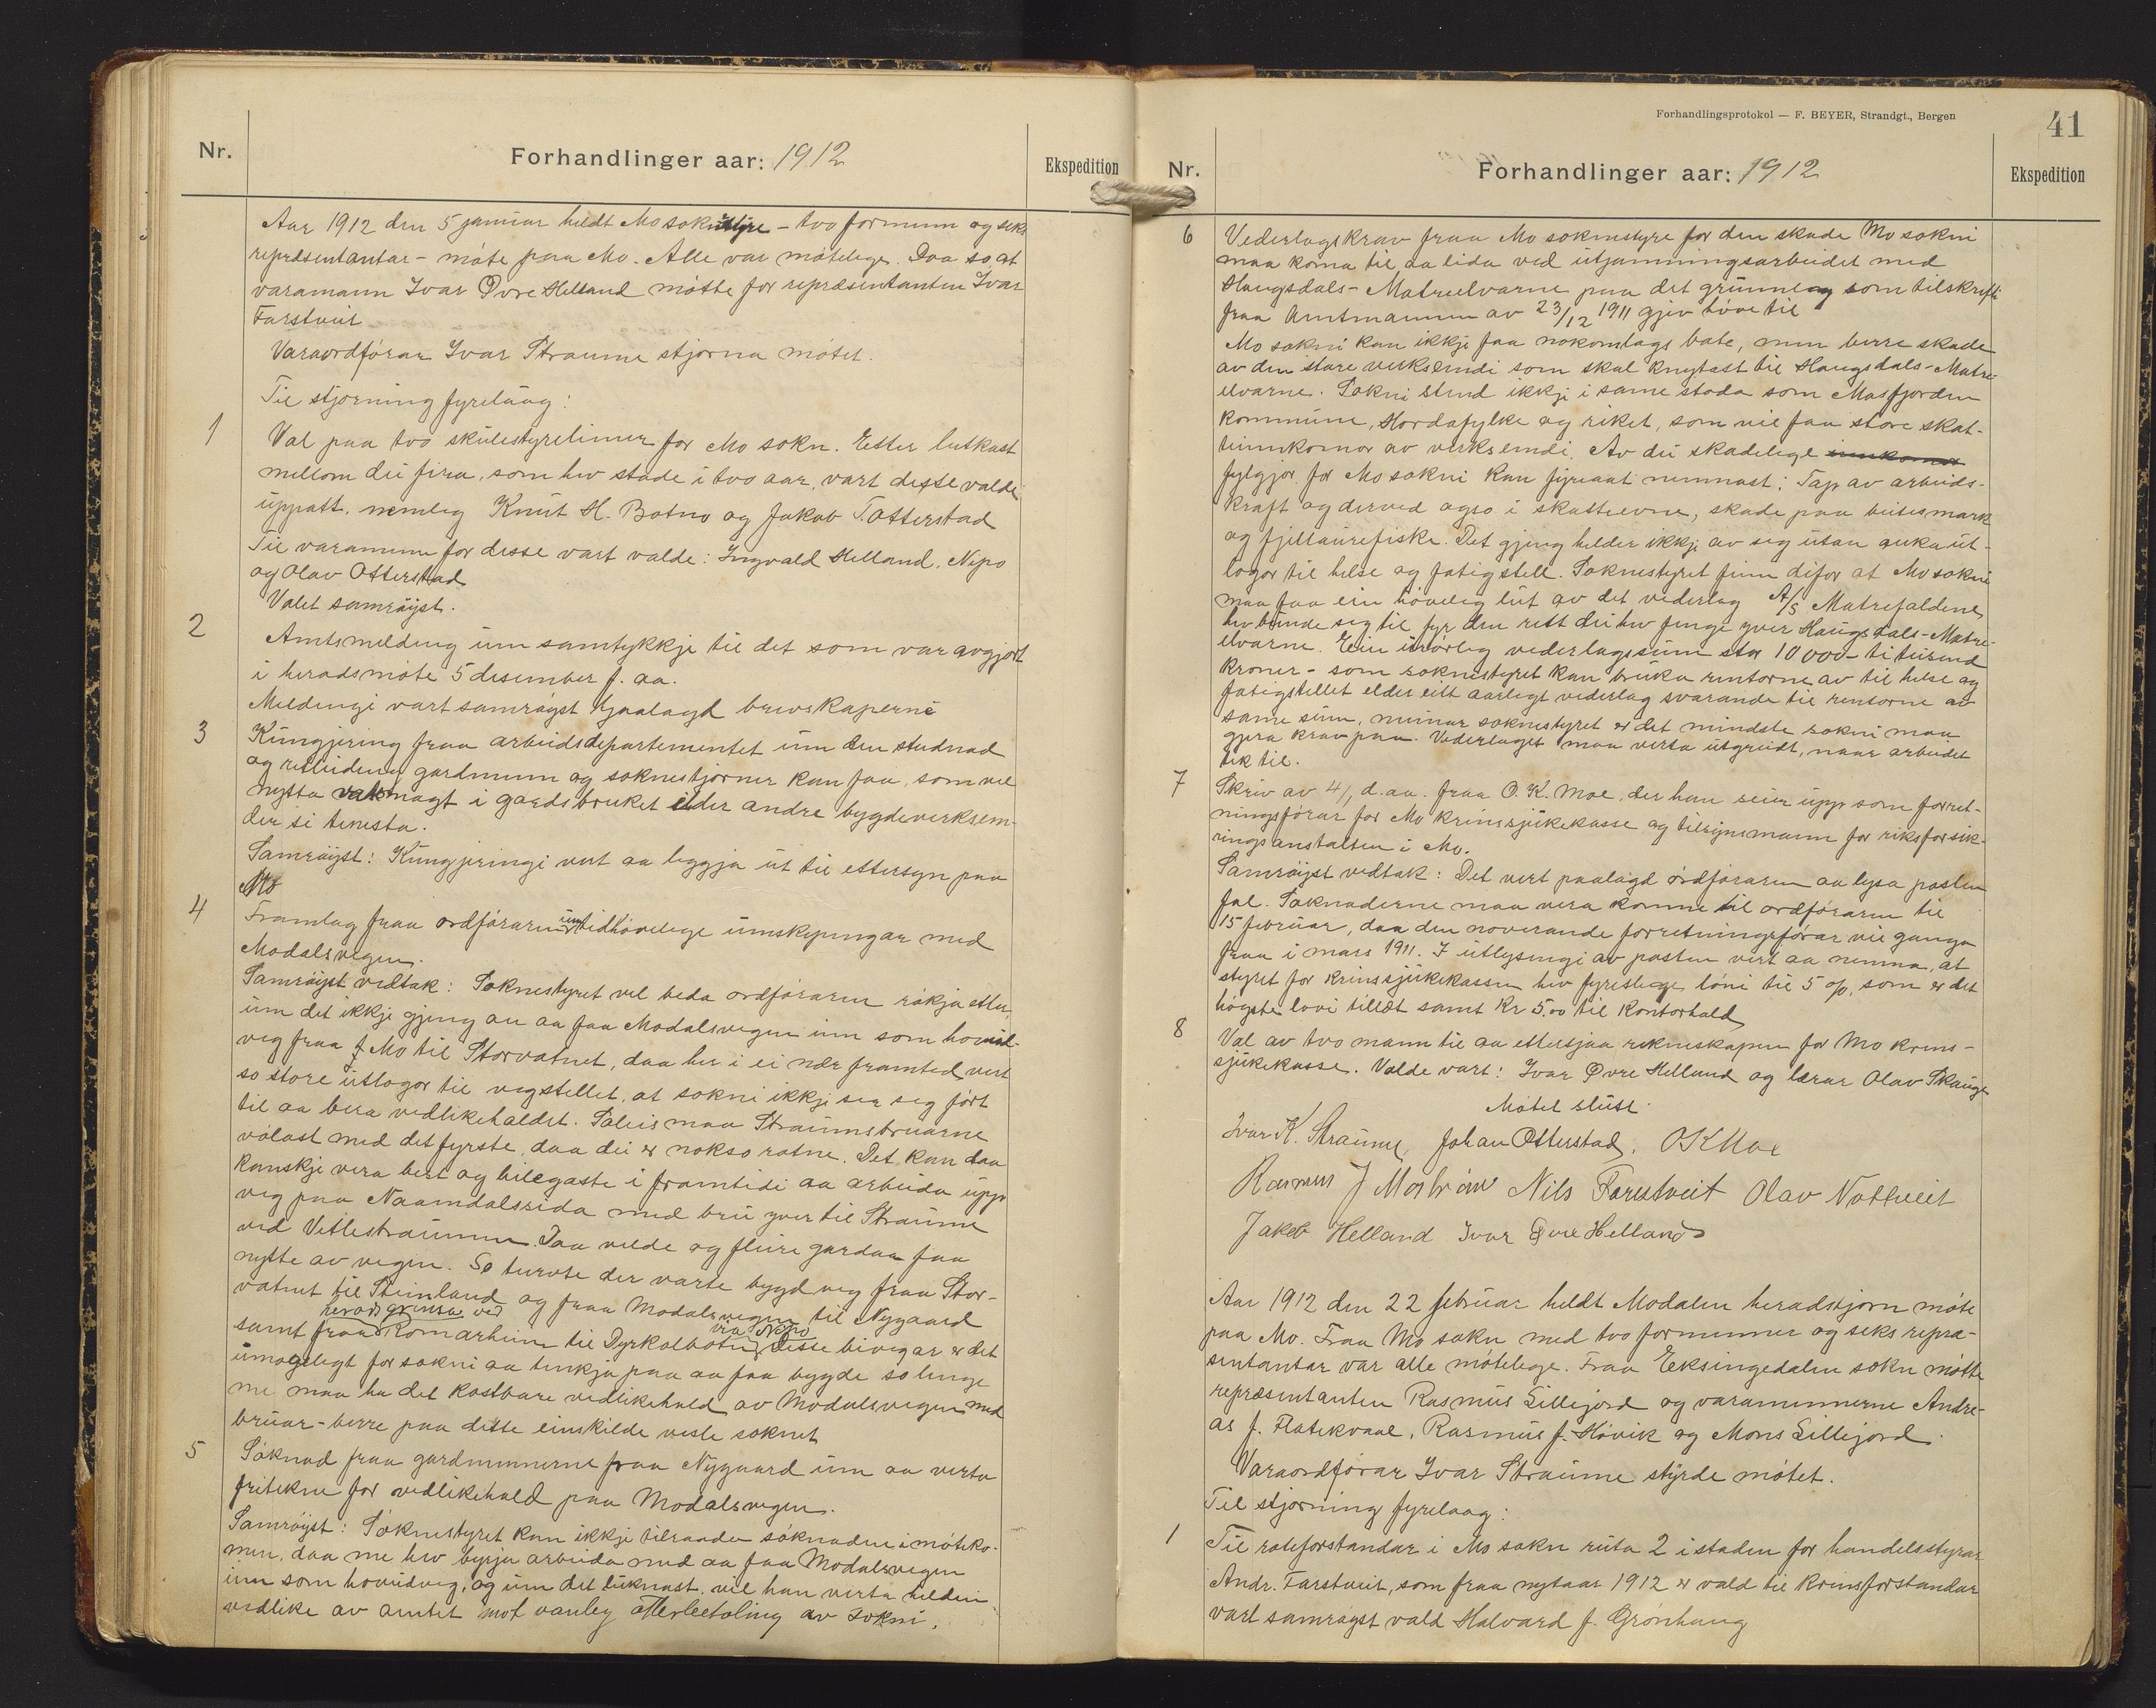 Nr.
Forhandlinger aar: 1912
Ekspedition
Aar 1912 den 5 januar heldt Mo soknstyre - tvo formenn og seks
repræsentantar - møte paa Mo. Alle var møtelege. Daa so at
varamann Ivar Øvre Helland møtte for repræsentanten Ivar
Farstveit
Varaordførar Ivar Straume stjorna møtet.
Til stjorning fyrelaag:
1
Val paa tvo skulestyrelimer for Mo sokn. Etter lutkast
mellom dei fira, som hev stade i tvo aar, vart desse valde
uppatt, nemleg Knut H. Botno og Jakob T. Otterstad
Til varamenn for desse vart valde: Ingvald Helland, Nepo
og Olav Otterstad
Valet samrøyst.
2
Amtsmelding um samtykkje til det som var avgjort
i heradsmøte 5 desember f. aa.
Meldingi vart samrøyst hjaalagd brevskaperne
3
Kungjering fraa arbeidsdepartementet um den studnad
og rettleiding gardmenn og soknestjorner kan faa, som vil
nytta vatsmagt i gardsbruket elder andre bygdeverksem-
der si tenesta.
Samrøyst: Kungjeringi vert aa leggja ut til ettersyn paa
Mo
4
Framlag fraa ordføraren um tidhøvelege umskipingar med
Modalsvegen.
Samrøyst vedtak: Soknestyret vil beda ordføraren røkja etter,
um det ikkje gjeng an aa faa Modalsvegen inn som hovud-
veg fraa Mo til Storvatnet, daa her i ei nær framtid vert
so store utlogor til vegstellet, at sokni ikkje ser seg ført
til aa bera vedlikehaldet. Soleis maa Straumsbruarne
vølast med det fyrste, daa dei er nokso rotne. Det kan daa
kanskje vera best og bilegaste i framtidi aa arbeida upp
veg paa Naamdalssida med bru yver til Straume
ved Vetlestraumen. Daa vilde og fleire gardar faa
nytte av vegen. So turvte der varte bygd veg fraa Stor-
vatnet til Steinland og fraa Modalsvegen til Nygaard
heradsgrensa ved
via Nepo
samt fraa Romarheim til Dyrkolbotn, Desse bivegar er det
umogelegt for sokni aa tenkja paa aa faa bygde so lenge
me maa ha det kostbare vedlikehald av Modalsvegen med
bruar - berre paa dette einskilde vesle soknet
5
Søknad fraa gardmennerne fraa Nygaard um aa verta
fritekne for vedlikehald paa Modalsvegen.
Samrøyst: Soknestyret kan ikkje tilraada søknaden i møteko-
men, daa me hev byrja arbeida med aa faa Modalsvegen
inn som hovudveg, og um det luknast, vil han verta helden
vedlike av amtet mot vanleg atterbetaling av sokni.
Forhandlingsprotokol — F. BEYER, Strandgt., Bergen
41
Nr.
Forhandlinger aar: 1912
Ekspedition
6
Vederlagskrav fraa Mo soknestyre for den skade Mo sokni
maa koma til aa lida ved utjamningsarbeidet med
Haugsdals- Matreelvarne paa det grunnlag som tilskrift
fraa Amtmannen av 23/12 1911 gjev høve til
Mo sokni kan ikkje faa nokomlags bate, men berre skade
av den store verksemdi som skal knytast til Haugsdals-Matre-
elvarne. Sokni stend ikkje i same stoda som Masfjorden
kommune, Hordafylke og riket, som vil faa store skat-
teinnkomor av verksemdi. Av dei skadelege innkomor
fylgjor for Mo sokni kan fyreaat nemnast: Tap av arbeids-
kraft og derved ogso i skatteevne, skade paa beitesmark
og fjellaurefiske. Det gjeng helder ikkje av seg utan auka ut-
logor til helse og fatigstell. Soknestyret finn difor at Mo sokni
maa faa ein høveleg lut av det vederlag A/S Matrefaldene
hev bunde seg til fyr den rett dei hev fenge yver Haugsdals-Matre-
elvarne. Ein urørleg vederlagssum stor 10 000 - ti tusend
kroner - som soknestyret kan bruka rentorne av til helse og
fatigstellet elder eitt aarlegt vederlag svarande til rentorne av
same sum, meinar soknestyret er det mindste sokni maa
gjera krav paa. Vederlaget maa verta utgreidt, naar arbeidet
tek til.
7
Skriv av 4/1 d. aa. fraa O. K. Moe, der han seier upp som forret-
ningsførar for Mo krinssjukekasse og tilsynsmann for riksforsik-
ringsanstalten i Mo.
Samrøyst vedtak: Det vert paalagd ordføraren aa lysa posten
fal. Søknaderne maa vera komne til ordføraren til
15 februar, daa den noverande forretningsførar vil ganga
fraa i mars 1911. I utlysingi av posten vert aa nemna, at
styret for krinssjukekassen hev fyreslege løni til 5 %, som er det
høgste lovi tillæt samt kr 5.00 til kontorhald
8
Val av tvo mann til aa ettersjaa rekneskapen for Mo krins-
sjukekasse. Valde vart: Ivar Øvre Helland og lærar Olav Skauge
Møtet slutt.
Ivar K. Straume, Johan Otterstad, O K Moe
Rasmus J Mostraum Nils Farestveit Olav Nottveit
Jakob Helland Ivar Øvre Helland
Aar 1912 den 22 februar heldt Modalen heradstjorn møte
paa Mo. Fraa Mo sokn med tvo formenner og seks repræ-
sentantar var alle møtelege. Fraa Eksingedalen sokn møtte
repræsentanten Rasmus Lillejord og varamennerne Andre-
as J. Flatekvaal, Rasmus J. Høvik og Mons Lillejord.
Varaordførar Ivar Straume styrde møtet.
Til stjorning fyrelaag:
1
Til roteforstandar i Mo sokn ruta 2 i staden for handelsstyrar
Andr. Farstveit, som fraa nytaar 1912 er vald til krinsforstandar
vart samrøyst vald Halvard J. Grønhaug